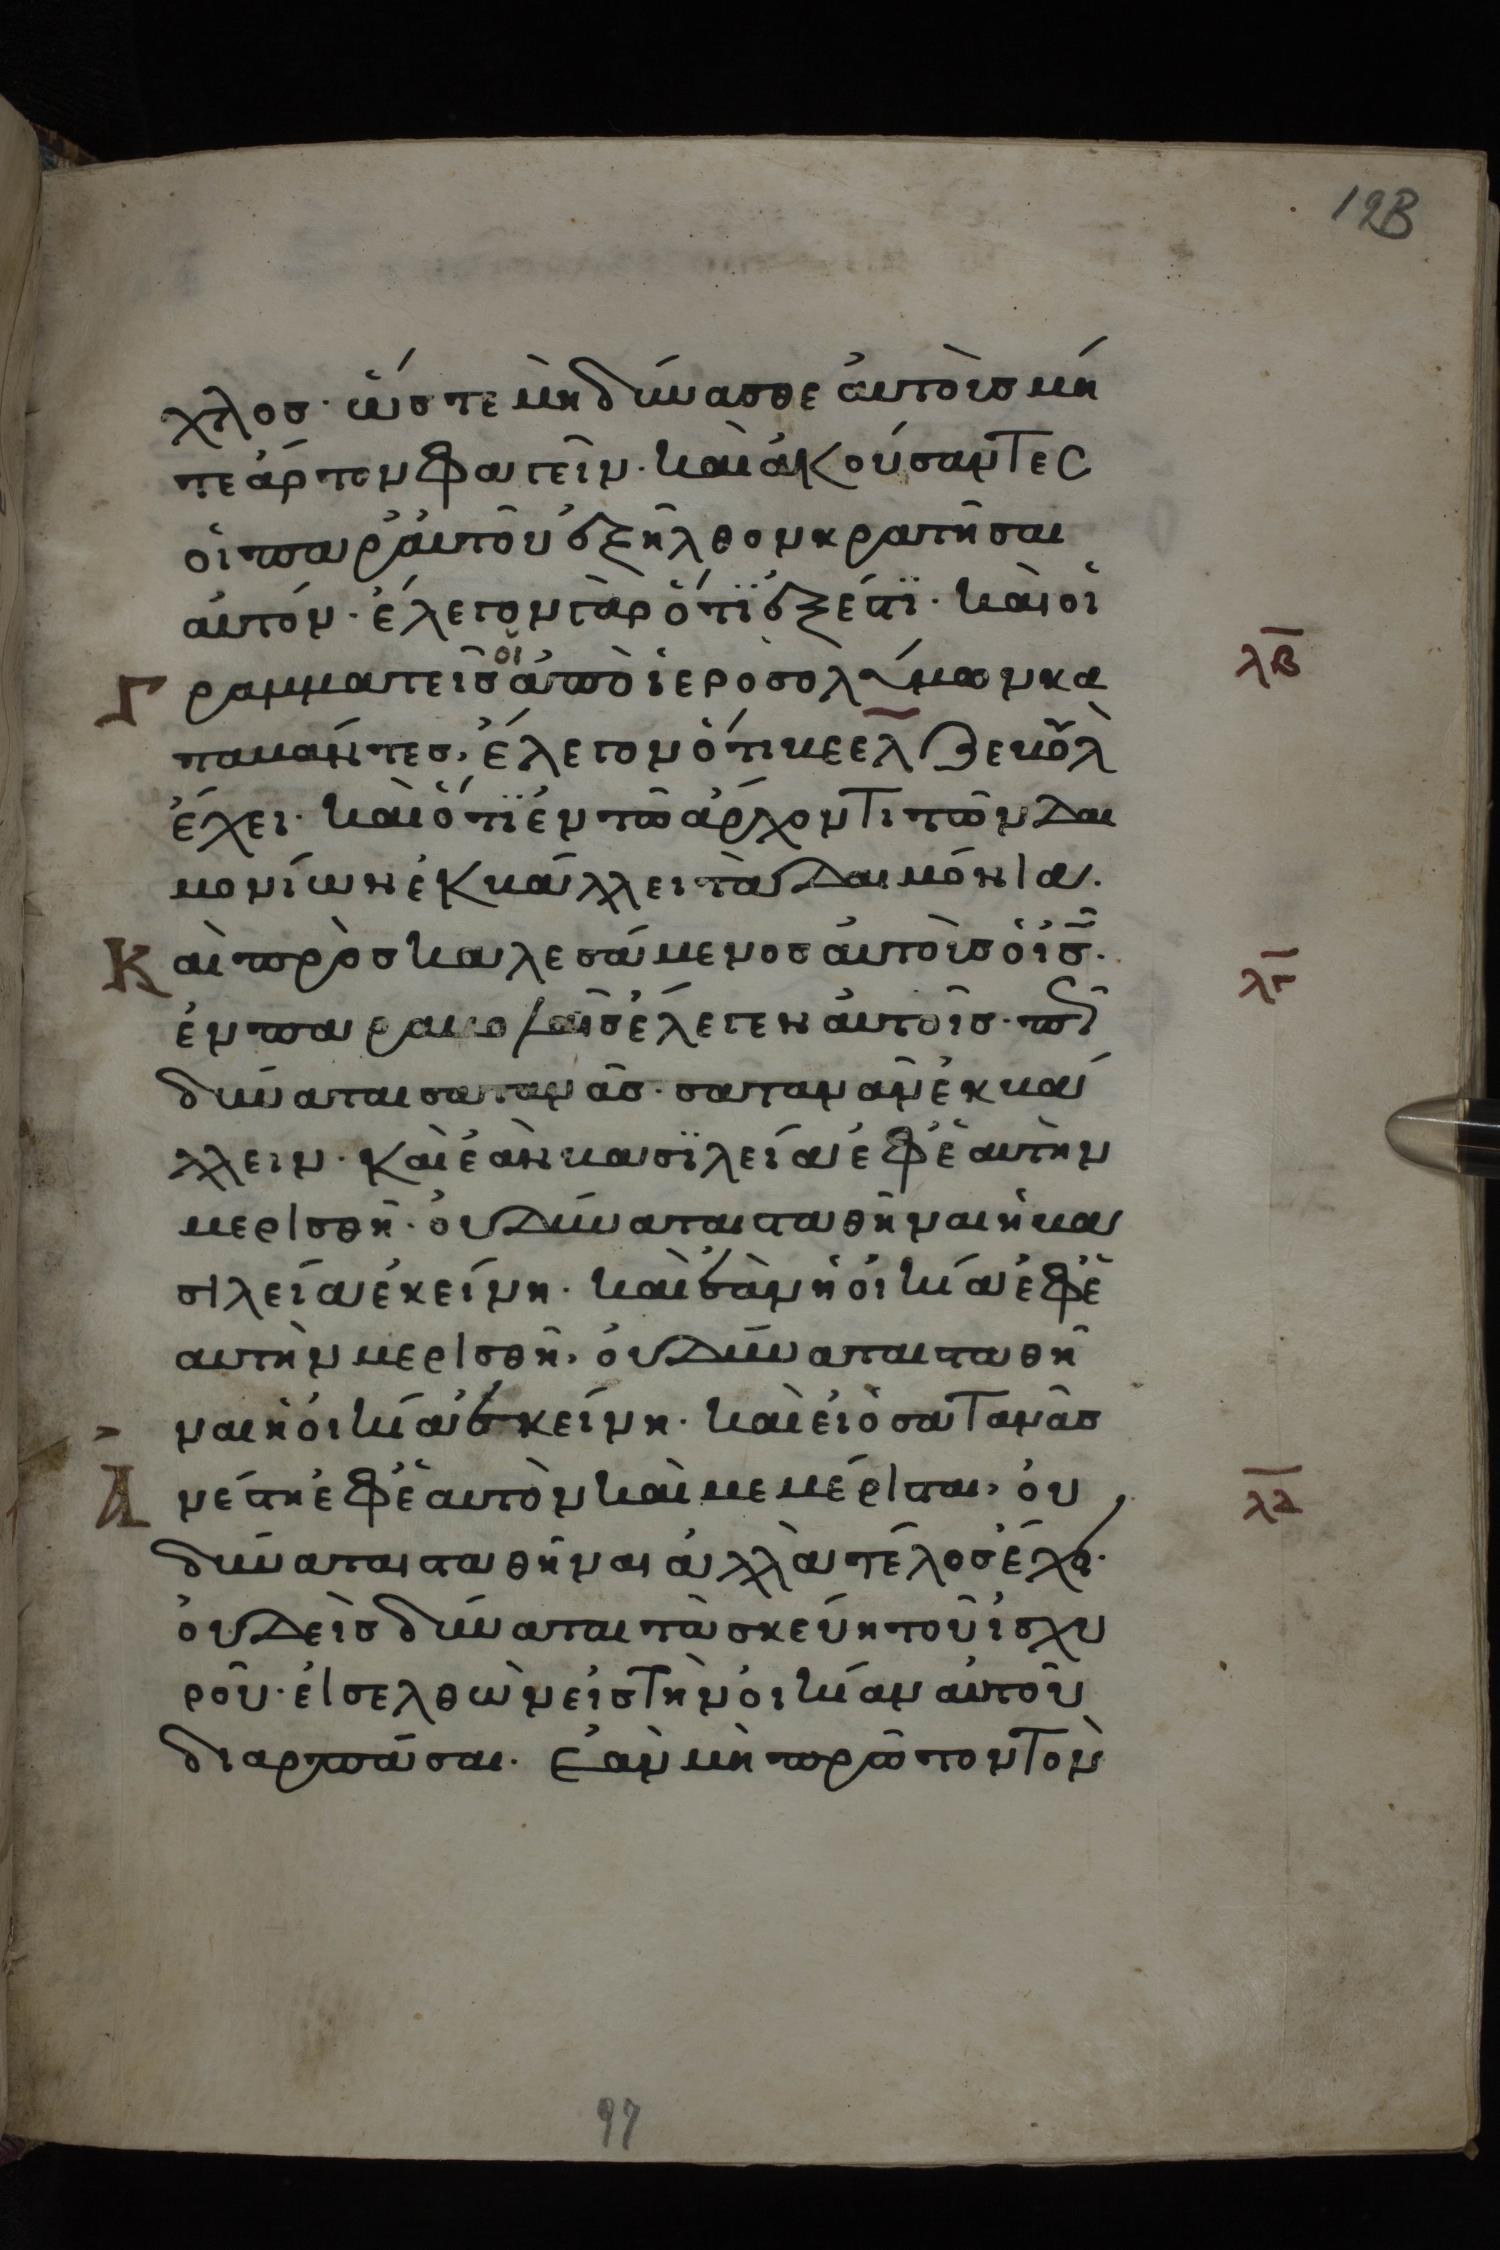 12B
χλος· ὥστε μὴ δύνασθε ἀυτοὺσ μή
τε άρτον φαγεῖν· καὶ ἀκούσαντες
ὁι παρ ἀυτοῦ ἐξῆλθον κρατῆσαι
ἀυτόν· έλεγον γὰρ ὅτϊ ἐξέστϊ· καὶ οἱ
γραμματεῖσ οἱ ἀπὸ ἱεροσολύμων κα
ταβάντεσ, έλεγον ὅτι βεελζεβοὺλ
έχει· καὶ ὅτϊ ἐν τῶ ἀρχοντι τῶν δαι
μονίων ἐκβάλλει τὰ δαιμόνια.
Καὶ προσκαλεσάμενοσ ἀυτοὺσ ὁ ἰ̅σ̅·
ἐν παραβολαῖσ ἔλεγεν ἀυτοῖσ· πῶσ
δύναται σατανᾶσ· σατανᾶν ἐκβά
λλειν· καὶ ἐὰν βασϊλεία ἐφ ἑαυτὴν
μερισθῆ· ὀυ δύναται σταθῆναι ἡ βα
σιλεία ἐκείνη· καὶ ἐὰν ἡ ὀικία ἐφ ἑ
αυτὴν μερισθῆ, ὀυ δύναται σταθῆ
ναι ἡ ὀικία ἐκείνη· καὶ ἐι ὁ σατανᾶσ
ἀνέστη ἐφ ἑαυτὸν καὶ μεμέρισται, ὀυ
δύναται σταθῆναι ἀλλὰ τέλοσ ἔχει·
ὀυδεὶσ δύναται τὰ σκεύη τοῦ ἰσχυ
ροῦ· ἐισελθὼν εἰσ τὴν ὀικίαν ἀυτοῦ
διαρπᾶσαι· ἐὰν μὴ πρῶτον τὸν
λβ
λγ
λδ
97